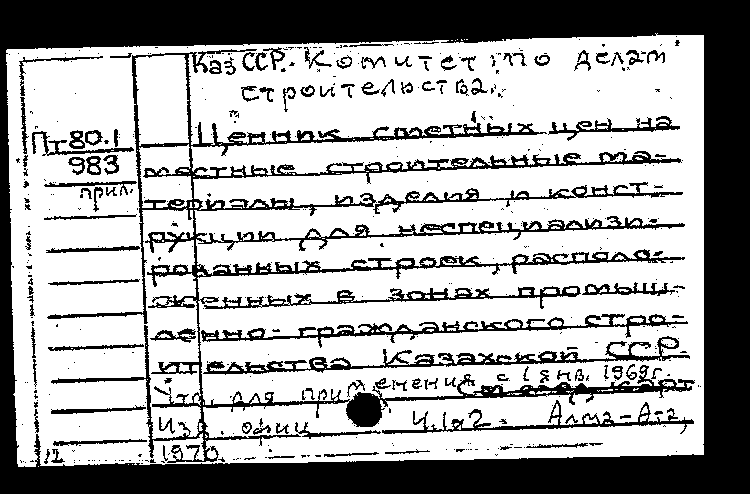 Каз ССР. Комитет по делам
строительства.
Пт80.1
983
прил.
Ценник сметных цен на
местные строительные ма-
териалы, изделия и конст-
рукции для неспециализи-
рованных строек, располо-
женных в зонах промыш-
ленно-гражданского стро-
ительства Казахской ССР.
Утв. для применения с 1 янв. 1969г.
Изд. офиц. Ч.1а2. Алма-Ата,
1970.
12